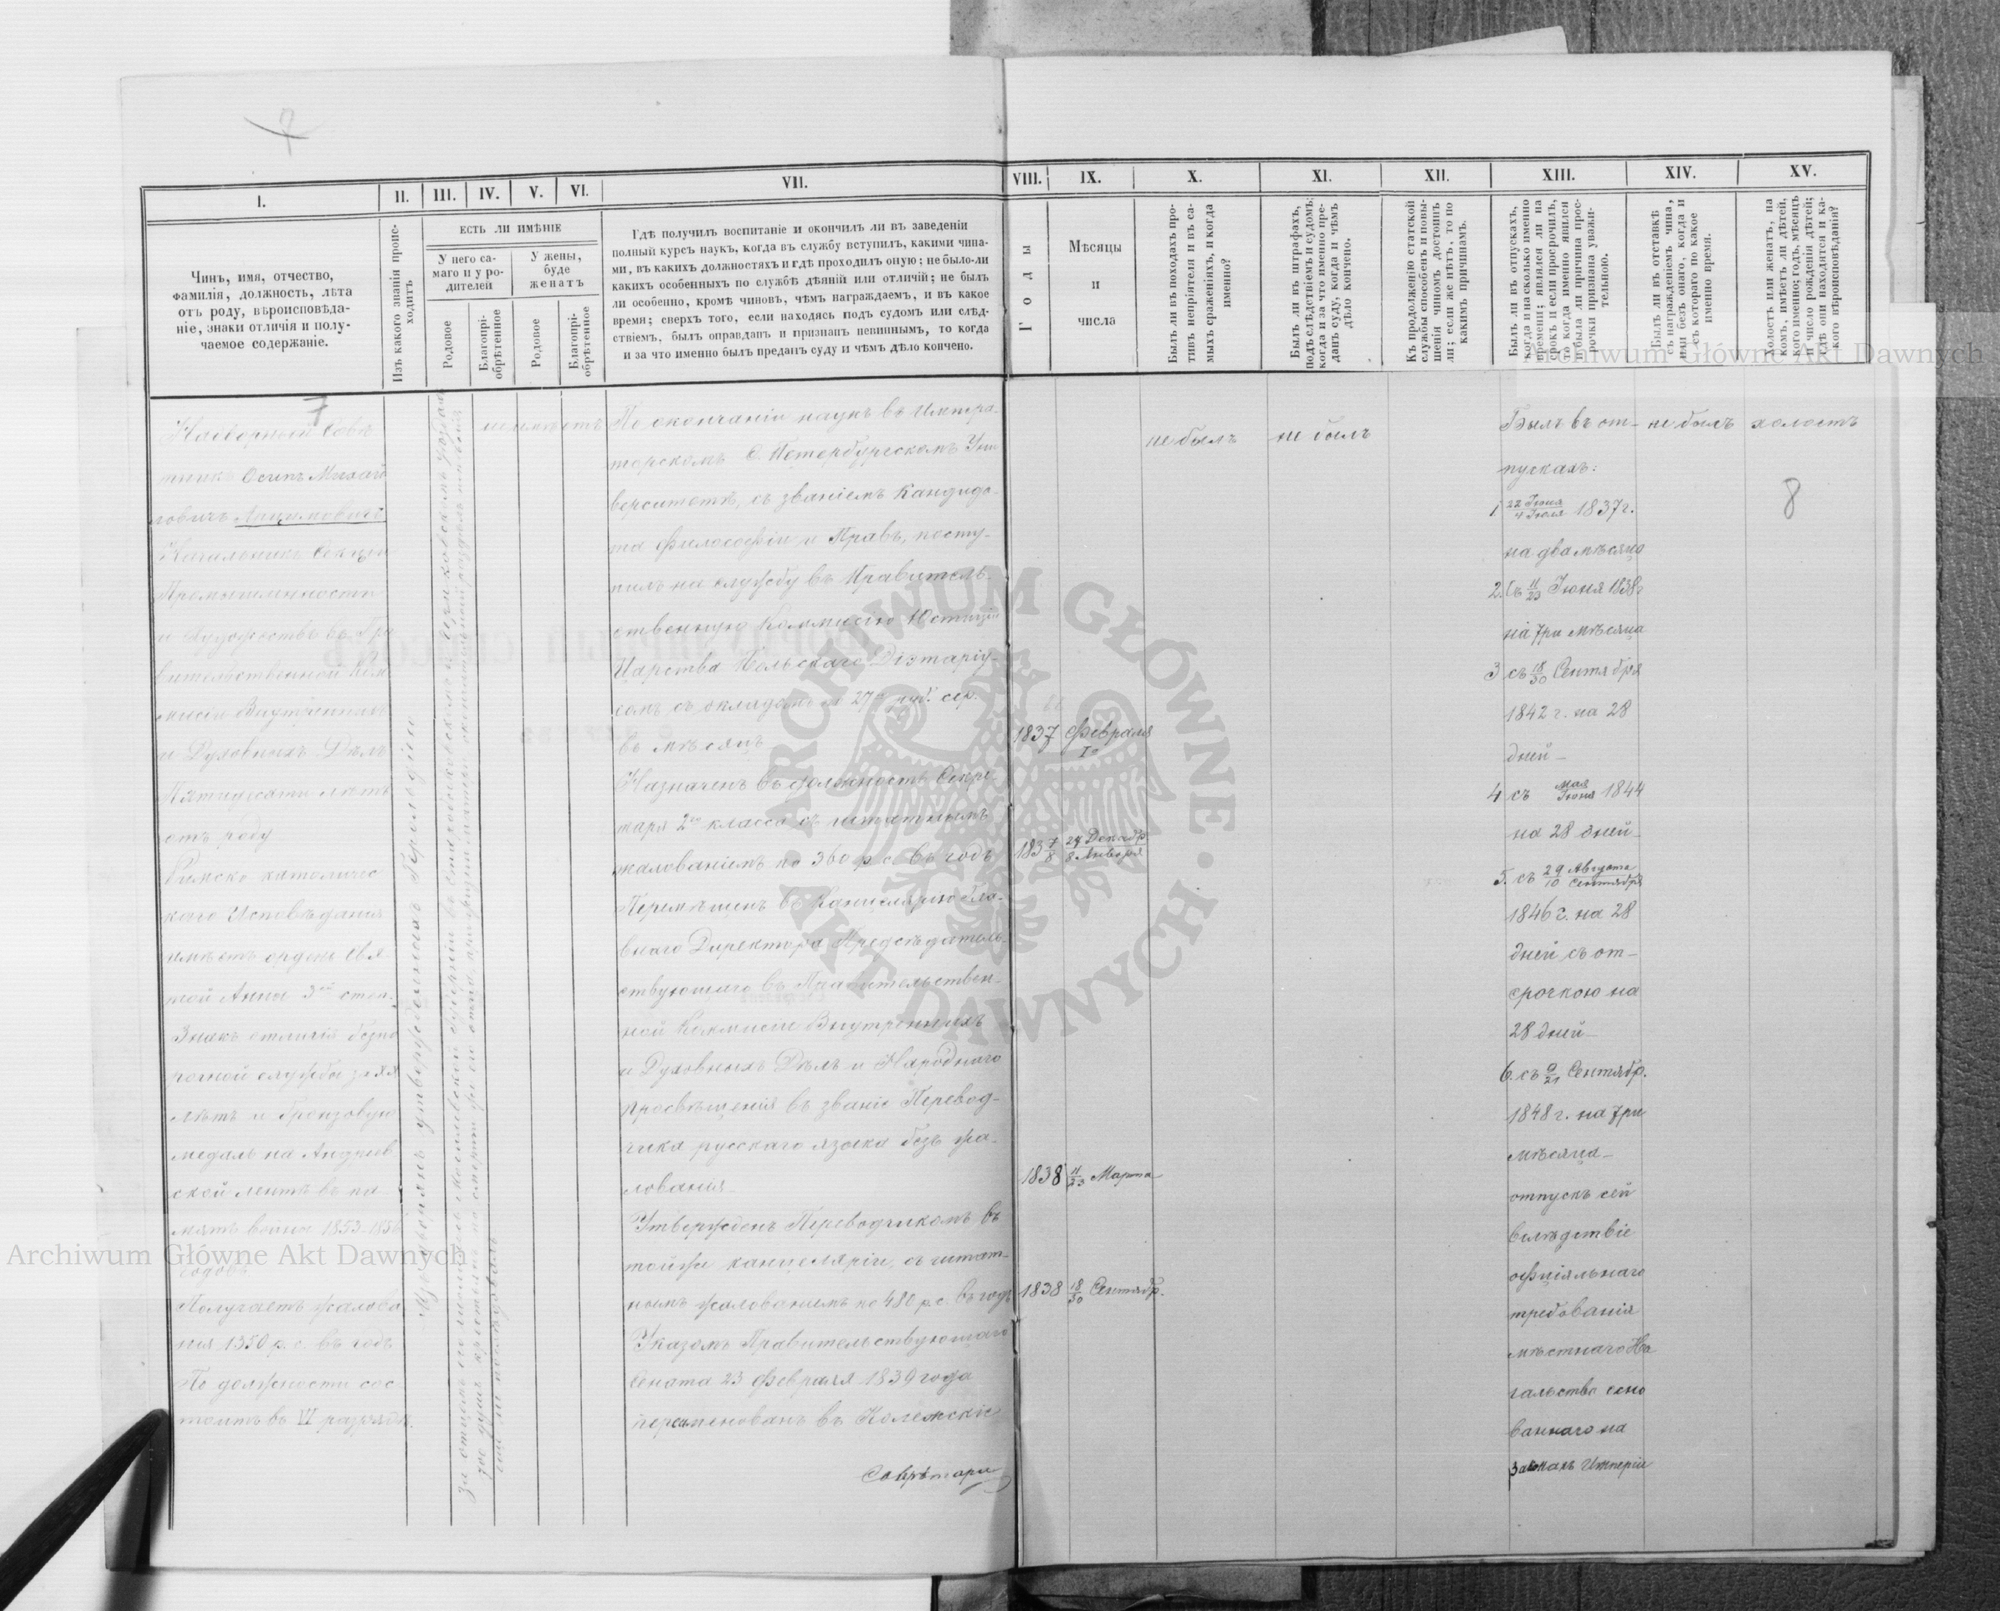 I.
II.
III.
IV.
V.
VI.
VII.
VIII.
IX.
X.
XI.
XII.
XIII.
XIV.
XV.
Чинъ, имя, отчество,
фамилія, должность, лѣта
отъ роду, вѣроисповѣда-
ніе, знаки отличія и полу-
чаемое содержаніе.
Изъ какого званія проис-
ходитъ
ЕСТЬ ЛИ ИМѢНІЕ
У него са-
маго и у ро-
дителей
У жены,
буде
женатъ
Родовое
Благопрі-
обрѣтенное
Родовое
Благопрі-
обрѣтенное
Гдѣ получилъ воспитаніе и окончилъ ли въ заведеніи
полный курсъ наукъ, когда въ службу вступилъ, какими чина-
ми, въ какихъ должностяхъ и гдѣ проходилъ оную; не было-ли
какихъ особенныхъ по службѣ дѣяній или отличій; не былъ
ли особенно, кромѣ чиновъ, чѣмъ награждаемъ, и въ какое
время; сверхъ того, если находясь подъ судомъ или слѣд-
ствіемъ, былъ оправданъ и признанъ невиннымъ, то когда
и за что именно былъ преданъ суду и чѣмъ дѣло кончено.
Годы
Мѣсяцы
и
числа
Былъ ли въ походахъ про-
тивъ непріятеля и въ са-
мыхъ сраженіяхъ, и когда
именно?
Былъ ли въ штрафахъ,
подъ слѣдствіемъ и судомъ;
когда и за что именно пре-
данъ суду, когда и чѣмъ
дѣло кончено.
Къ продолженію статской
службы способенъ и повы-
шенія чиномъ достоинъ
ли; если же нѣтъ, то по
какимъ причинамъ.
Былъ ли въ отпускахъ,
когда и на сколько именно
времени; явился ли на
срокъ и если просрочилъ,
то когда именно явился
и была ли причина прос-
рочки признана уважи-
тельною.
Былъ ли въ отставкѣ
съ награжденіемъ чина,
или безъ онаго, когда и
съ котораго по какое
именно время.
Холостъ или женатъ, на
комъ, имѣетъ ли дѣтей,
кого именно; годъ, мѣсяцъ
и число рожденія дѣтей;
гдѣ они находятся и ка-
кого вѣроисповѣданія?
7
Надворный Совѣ
тникъ Осипъ Михай
ловичъ
Начальникъ Секціи
Промышленности
и Художествъ въ Пра
вительственной Ком
мисіи Внутреннихъ
и Духовныхъ Дѣлъ
Пятидесяти лѣтъ
отъ роду
Римско католичес
каго Исповѣданія
имѣетъ ордена Свя
той Анны 3ей степ.
Знакъ отличія безпо
рочной службы за
лѣтъ и бронзовую
медаль на Андреев
ской лентѣ въ па
мять войны 1853-1856
годовъ
Получаетъ жалова
нія 1350 р. с. въ годъ
По должности сос
тоитъ въ VI разрядѣ.
Изъ дворянъ утвержденныхъ Герольдіею
не имѣетъ
По окончаніи наукъ въ Импера-
торскомъ С. Петербургскомъ Уни
верситетѣ, съ званіемъ Кандида-
та философіи и Правъ, посту-
пилъ на службу въ Правитель-
ственную Коммисію Юстиціи
Царства Польскаго Діэтаріу-
сомъ съ окладомъ по 27 руб. сер.
въ мѣсяцъ
Назначенъ въ должность Секре-
таря 2го класса съ штатнымъ
жалованіемъ по 360 р. с. въ годъ
Перемѣщенъ въ Канцелярію Гла-
внаго Директора Предсѣдатель-
ствующаго въ Правительствен-
ной Коммисіи Внутреннихъ
и Духовныхъ Дѣлъ и Народнаго
просвѣщенія въ званіе Перевод-
чика русскаго языка безъ жа-
лованія
Утвержденъ Переводчикомъ въ
тойже канцеляріи, съ штат-
нымъ жалованіемъ по 480 р.с. въ годъ
Указомъ Правительствующаго
Сената 23 Февраля 1839 года
переименованъ въ Колежскіе
Секретари
1837 Февраля
1837/8 Декабр
8 Января
1838 11/23 Марта
1838 18/30 Сентябр.
не былъ
не былъ
Былъ въ от-
пускахъ:
1. 22 Іюня/4 Іюля 1837 г.
на два мѣсяца
2. Съ 11/23 Іюня 1838 г
на три мѣсяца
3 съ 18/30 Сентября
1842 г. на 28
дней
4 съ Мая/Іюня 1844
на 28 дней
5. съ 29 Августа/10 Сентября
1846 г. на 28
дней съ от-
срочкою на
28 дней
6. съ 9/21 Сентябр.
1848 г. на три
мѣсяца
отпускъ сей
вслѣдствіе
офиціяльнаго
требованія
мѣстнаго На
чальства осно
ваннаго на
Законахъ Имперіи
не былъ
холостъ
8
ARCHIWUM GŁÓWNE AKT DAWNYCH
Archiwum Główne Akt Dawnych
Archiwum Główne Akt Dawnych